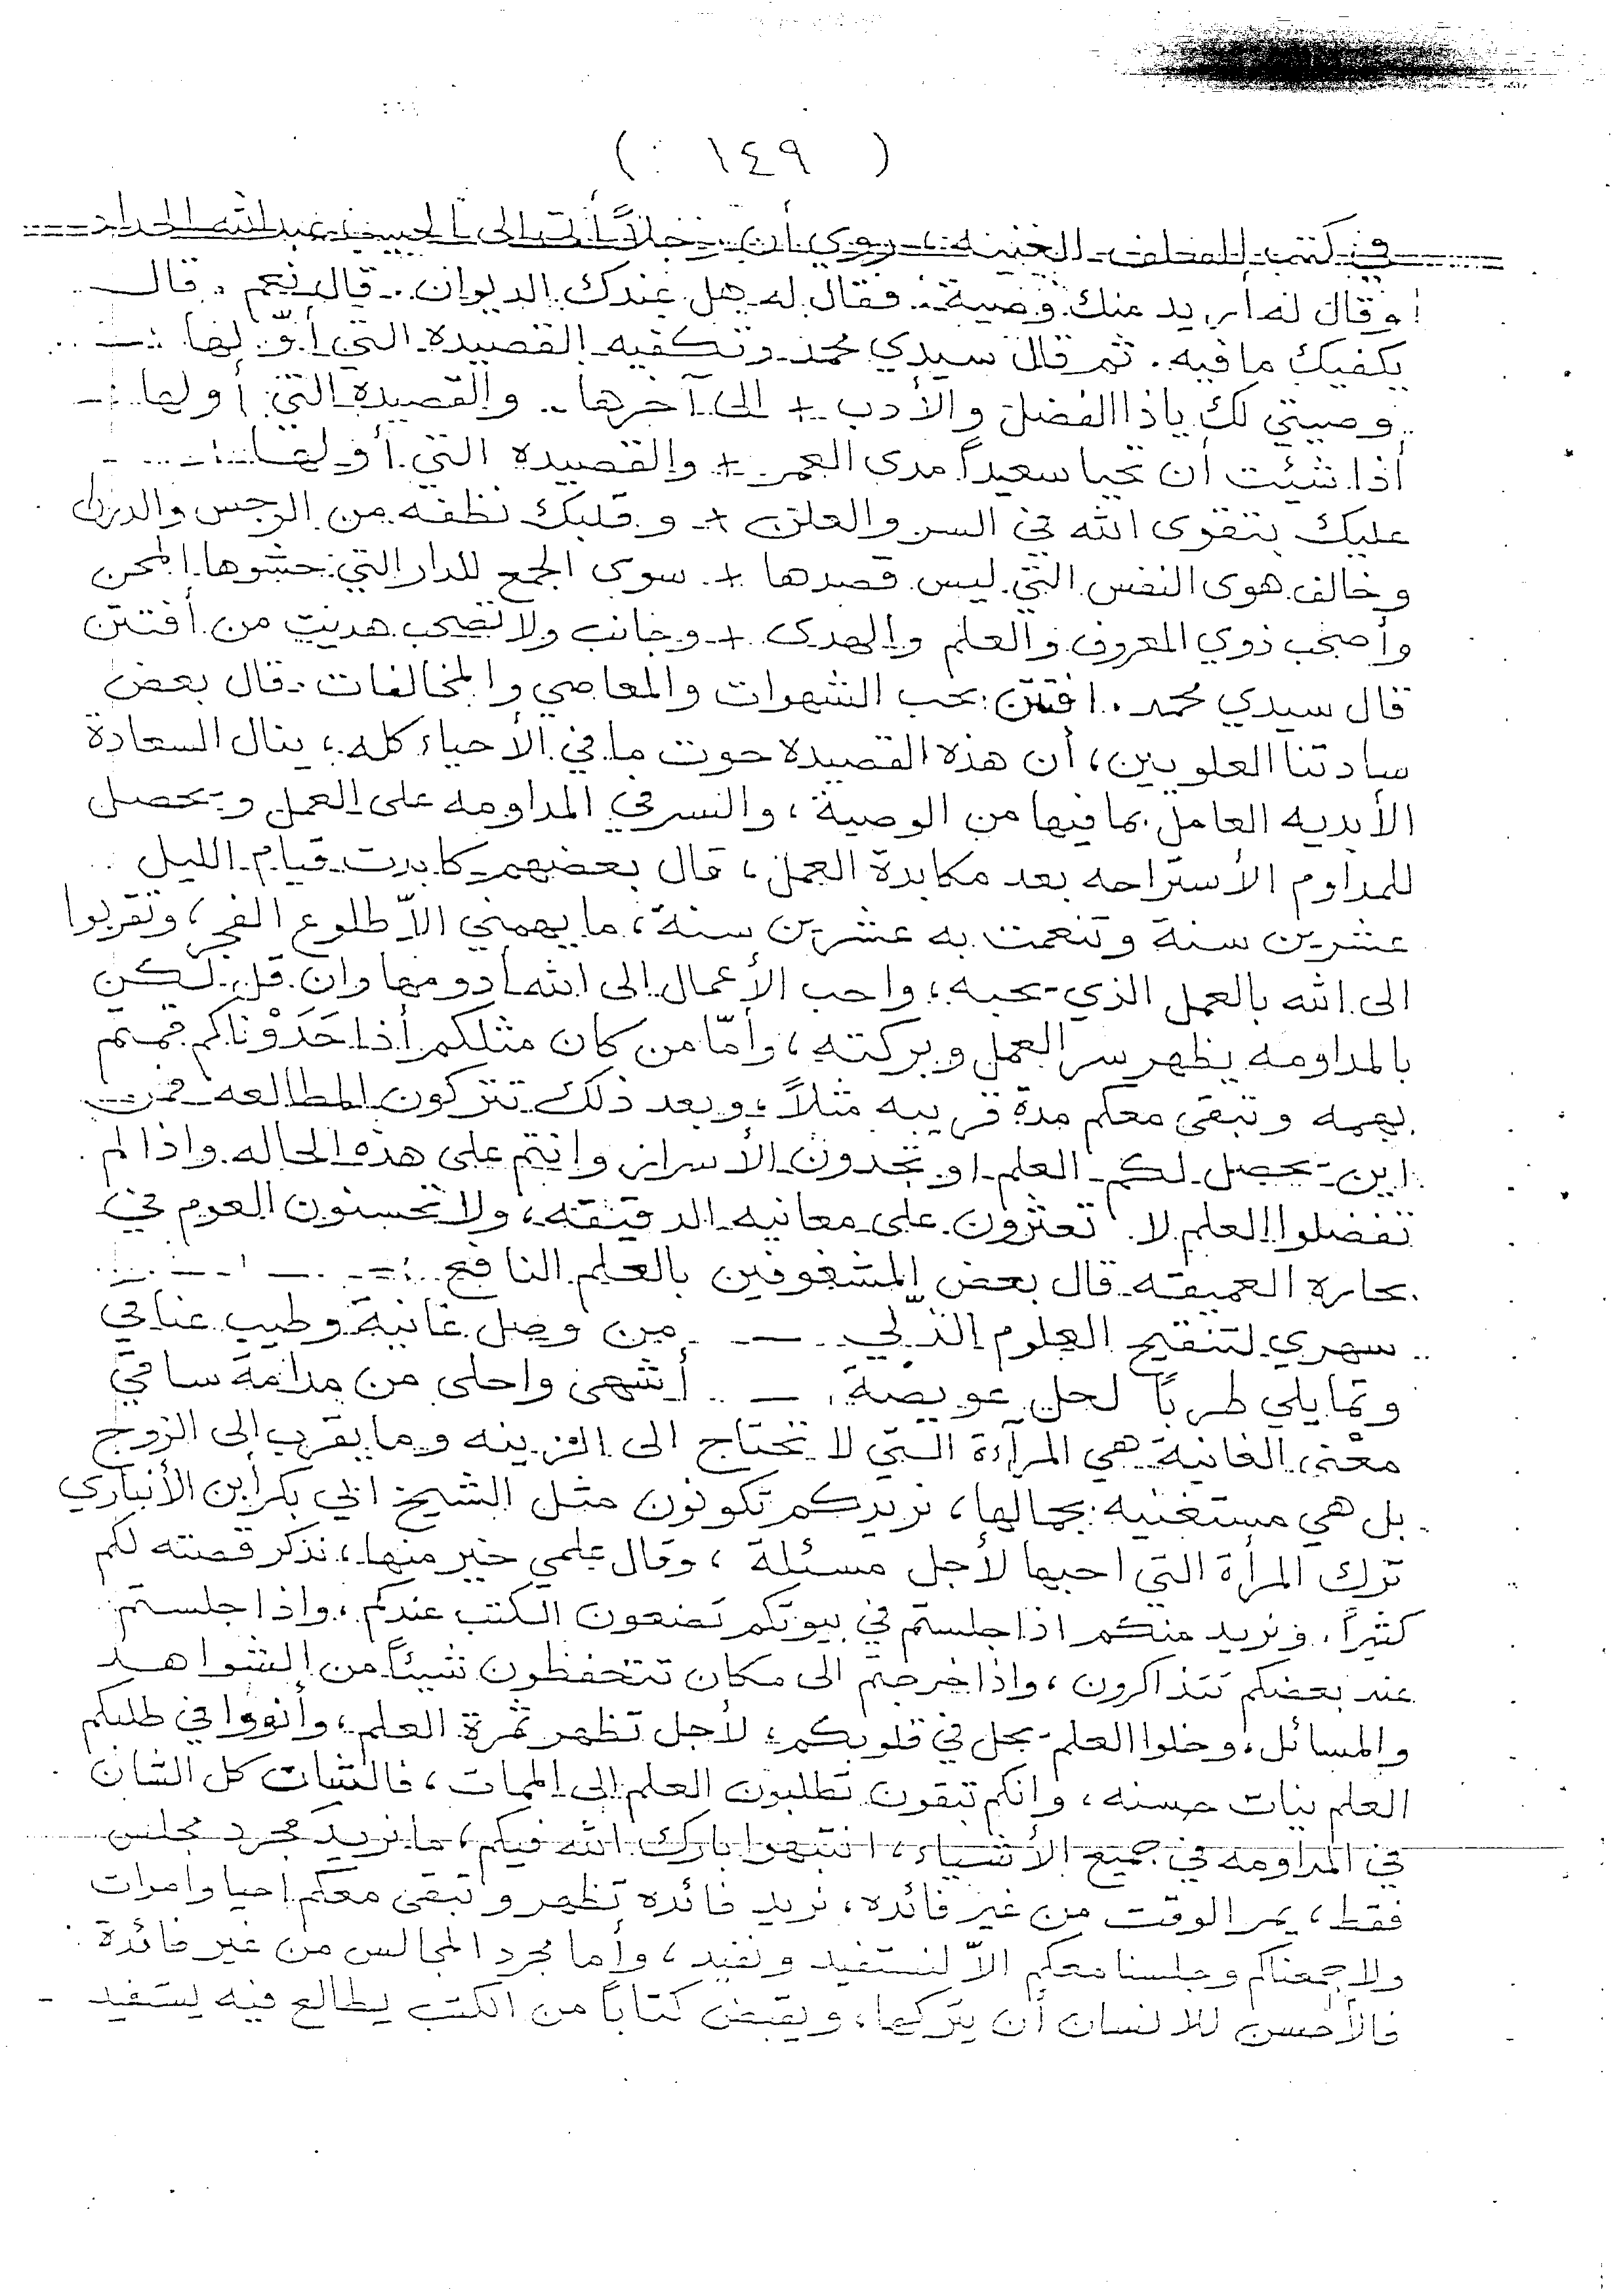 ( ١٤٩ )
في كتب السلف الغنية، روي أن رجلاً أتى الى الحبيب عبدالله الحداد
وقال له أريد منك وصية. فقال له هل عندك الديوان. قال نعم. قال
يكفيك ما فيه. ثم قال سيدي محمد وتكفيه القصيده التي أولها :-
وصيتي لك ياذا الفضل والأدب + الى آخرها. والقصيده التي أولها :-
أذا شئت أن تحيا سعيداً مدى العمر + والقصيده التي أولها :-
عليك بتقوى الله في السر والعلن + وقلبك نظفه من الرجس والدرن
وخالف هوى النفس التي ليس قصدها + سوى الجمع للدار التي حشوها المحن
وأصحب ذوي المعروف والعلم والهدى + وجانب ولا تصحب هديت من أفتتن
قال سيدي محمد. افتتن بحب الشهوات والمعاصي والمخالفات. قال بعض
سادتنا العلويين، أن هذه القصيدة حوت ما في الأحياء كله، ينال السعادة
الأبديه العامل بما فيها من الوصية، والسر في المداومه على العمل ويحصل
للمداوم الأستراحه بعد مكابدة العمل، قال بعضهم كابدت قيام الليل
عشرين سنة وتنعمت به عشرين سنة، ما يهمني الاّ طلوع الفجر، وتقربوا
الى الله بالعمل الذي يحبه، واحب الأعمال الى الله أدومها وان قل، لكن
بالمداومه يظهر سر العمل وبركته، وأمّا من كان مثلكم أذا حَدَوْناكم قمتم
بهمه وتبقى معكم مدة قريبه مثلاً، وبعد ذلك تتركون المطالعه فمن
اين يحصل لكم العلم او تجدون الأسرار وانتم على هذه الحاله واذا لم
تفضلوا العلم لا تعثرون على معانيه الدقيقه، ولا تحسنون العوم في
بحاره العميقه قال بعض المشغوفين بالعلم النافع :-
سهري لتنقيح العلوم الذّلي - من وصل غانية وطيب عناقي
وتمايلي طرباً لحل عويصة - أشهى واحلى من مدامة ساقي
معنى الغانية هي المرآءة التي لا تحتاج الى الزينه وما يقرب الى الزوج
بل هي مستغنيه بجمالها، نريدكم تكونون مثل الشيخ ابي بكر أبن الأنباري
ترك المرأة التي احبها لأجل مسئلة، وقال علمي خير منها، نذكر قصته لكم
كثيراً، ونريد منكم اذا جلستم في بيوتكم تضعون الكتب عندكم، واذا جلستم
عند بعضكم تتذاكرون، واذا خرجتم الى مكان تتحفظون شيئاً من الشواهد
والمسائل، وخلوا العلم يحل في قلوبكم، لأجل تظهر ثمرة العلم، وأنووا في طلبكم
العلم نيات حسنه، وانكم تبقون تطلبون العلم إلى الممات، فالثبات كل الشان
في المداومه في جميع الأشياء، انتبهوا بارك الله فيكم، ما نريد مجرد مجلس
فقط، يمر الوقت من غير فائده، نريد فائده تظهر وتبقى معكم احيا وامرات
ولا جمعناكم وجلسنا معكم الاّ لنستفيد ونفيد، وأما مجرد المجالس من غير فائدة
فالأحسن للانسان أن يتركها، ويقبض كتاباً من الكتب يطالع فيه يستفيد -